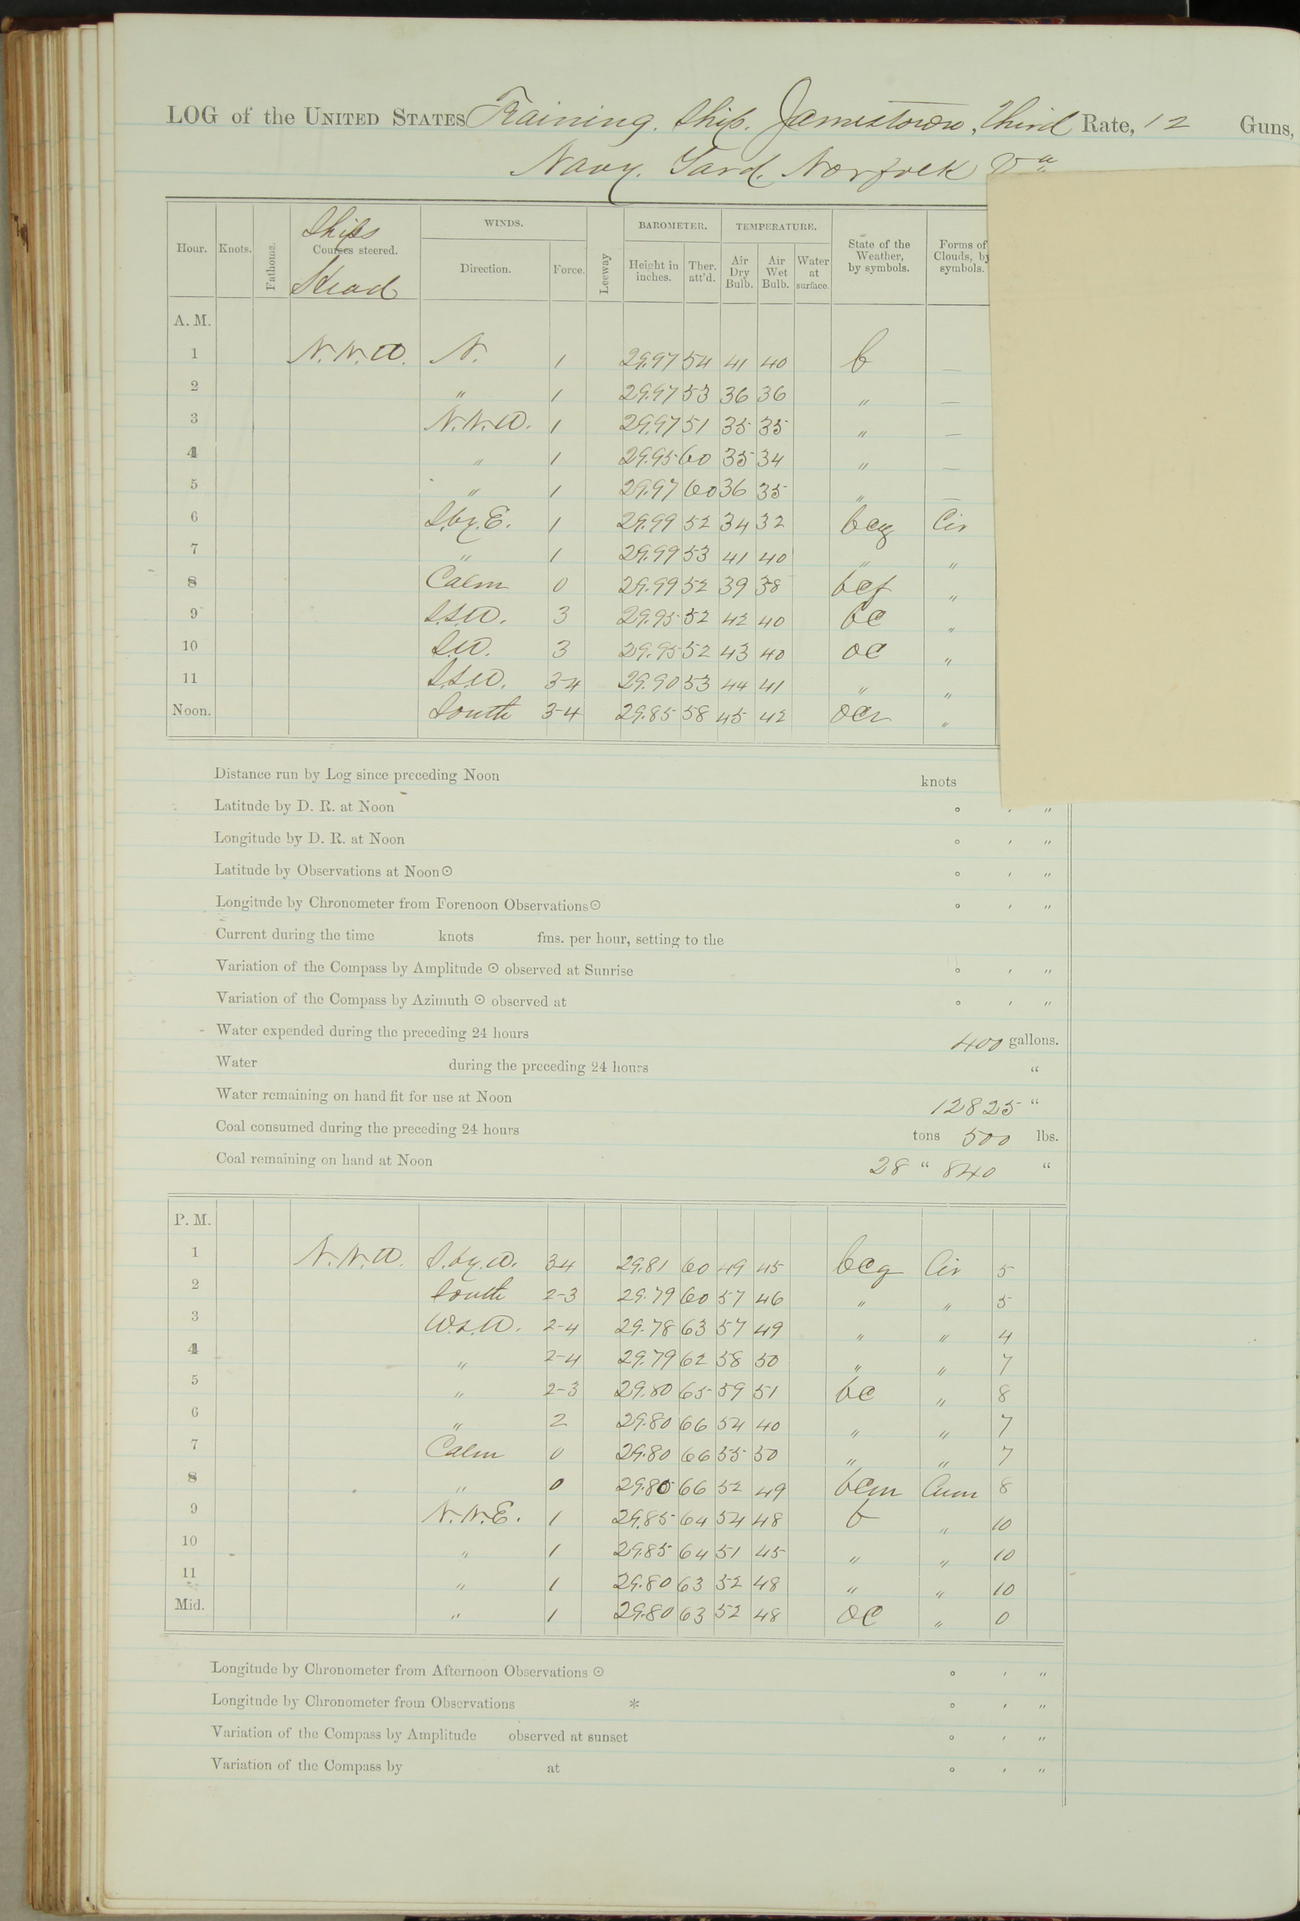 LOG of the UNITED STATES Training Ship Jamestown, Third Rate, 12 Guns,
Navy Yard, Norfolk Va
Hour. Knots. Fathoms. Ships Courses steered. Head WINDS. Direction. Force. Leeway BAROMETER. Height in inches. Ther. att'd. TEMPERATURE. Air Dry Bulb. Air Wet Bulb. Water at surface. State of the Weather, by symbols. Forms of Clouds, by symbols.
A. M.
1 N.N.W. N. 1 29.97 54 41 40 b —
2 " 1 29.97 53 36 36 " —
3 N.N.W. 1 29.97 51 35 35 " —
4 " 1 29.95 60 35 34 " —
5 " 1 29.97 60 36 35 " —
6 S.by.E. 1 29.99 52 34 32 bcg Cir
7 " 1 29.99 53 41 40 " "
8 Calm 0 29.99 52 39 38 bcf "
9 S.S.W. 3 29.95 52 42 40 bc "
10 S.W. 3 29.95 52 43 40 oc "
11 S.S.W. 3-4 29.90 53 44 41 " "
Noon. South 3-4 29.85 58 45 42 ocr "
Distance run by Log since preceding Noon knots
Latitude by D. R. at Noon ° ' "
Longitude by D. R. at Noon ° ' "
Latitude by Observations at Noon ☉ ° ' "
Longitude by Chronometer from Forenoon Observations ☉ ° ' "
Current during the time knots fms. per hour, setting to the
Variation of the Compass by Amplitude ☉ observed at Sunrise ° ' "
Variation of the Compass by Azimuth ☉ observed at ° ' "
Water expended during the preceding 24 hours 400 gallons.
Water during the preceding 24 hours "
Water remaining on hand fit for use at Noon 12825 "
Coal consumed during the preceding 24 hours tons 500 lbs.
Coal remaining on hand at Noon 28 " 840 "
P. M.
1 N.N.W. S.by.W. 3-4 29.81 60 49 45 bcg Cir 5
2 South 2-3 29.79 60 57 46 " " 5
3 W.S.W. 2-4 29.78 63 57 49 " " 4
4 " 2-4 29.79 62 58 50 " " 7
5 " 2-3 29.80 65 59 51 bc " 8
6 " 2 29.80 66 54 40 " " 7
7 Calm 0 29.80 66 55 50 " " 7
8 " 0 29.80 66 52 49 bcm Cum 8
9 N.N.E. 1 29.85 64 54 48 b " 10
10 " 1 29.85 64 51 45 " " 10
11 " 1 29.80 63 52 48 " " 10
Mid. " 1 29.80 63 52 48 oc " 0
Longitude by Chronometer from Afternoon Observations ☉ ° ' "
Longitude by Chronometer from Observations * ° ' "
Variation of the Compass by Amplitude observed at sunset ° ' "
Variation of the Compass by at ° ' "